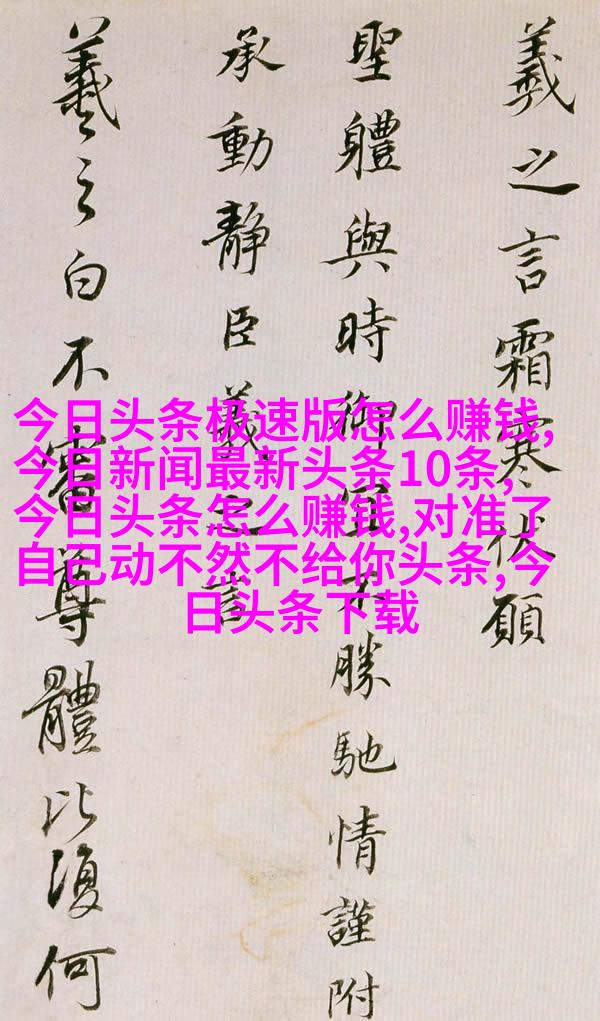 羲之言霜寒伏願
聖體與時御宜不勝馳情謹附
承動靜臣羲之言
羲之白不審尊體比復何
今日头条极速版怎么赚钱,
今日新闻最新头条10条,
今日头条怎么赚钱,对准了
自己动不然不给你头条,今
日头条下载